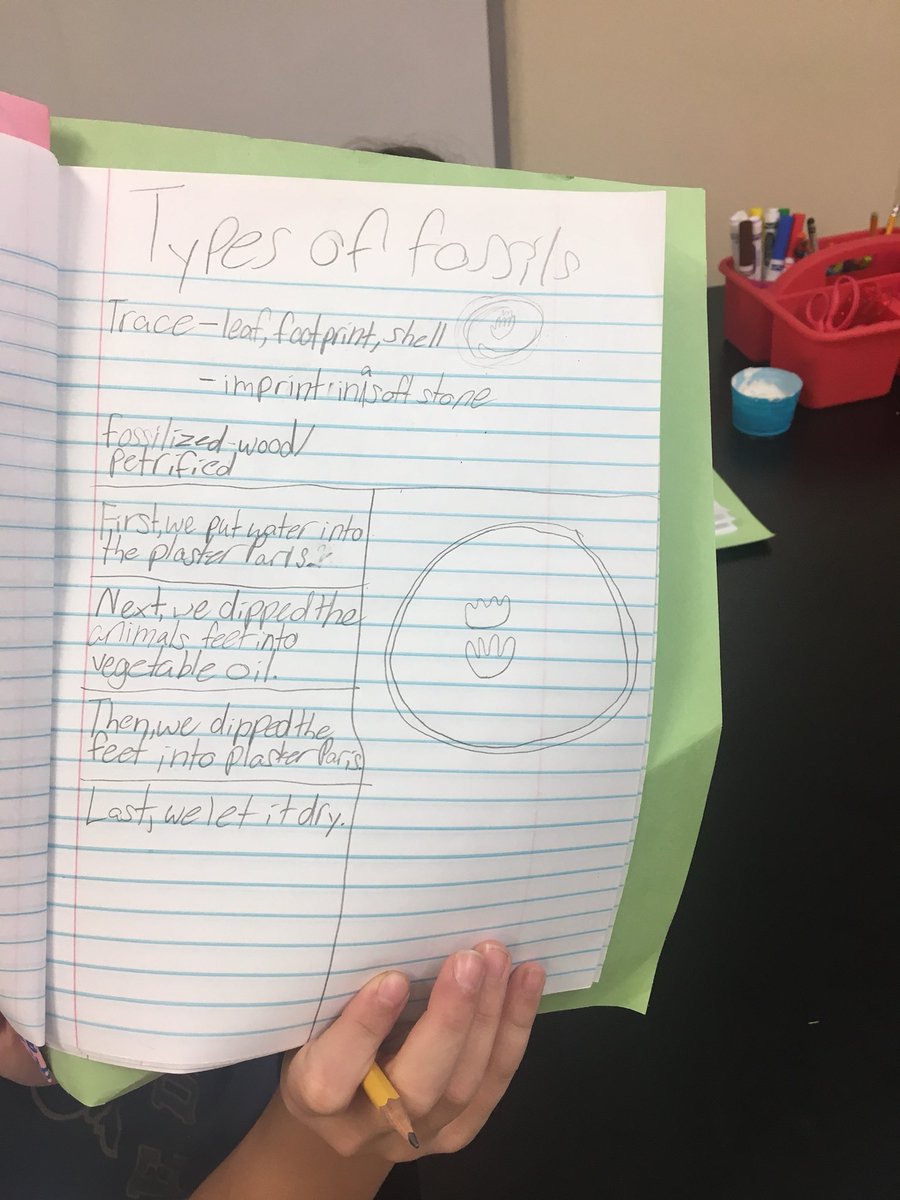 Types of fossils
Trace-leaf, footprint, shell
-imprint in a soft stone
fossilized-wood/
petrified
First, we put water into
the plaster Paris.
Next, we dipped the
animals feet into
vegetable oil.
Then, we dipped the
feet into plaster Paris.
Last, we let it dry.